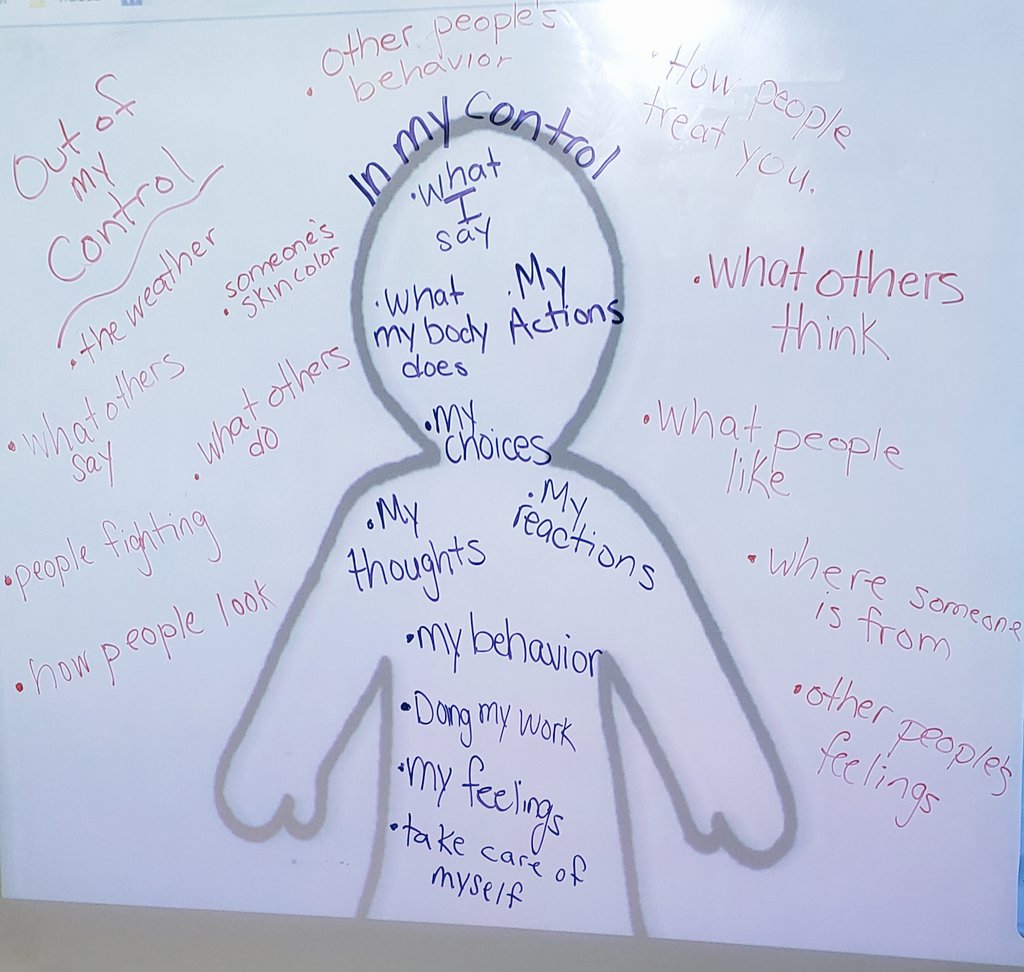 Out of
my
Control
• the weather
• someone's
skin color
• what others
say
• what others
do
• people fighting
• how people look
• other people's
behavior
In my control
• what
I
say
• what
my body
does
• My
Actions
• my
choices
• My
thoughts
• My
reactions
• my behavior
• Dong my work
• my feelings
• take care of
myself
• How people
treat you.
• what others
think
• what people
like
• where someone
is from
• other people's
feelings